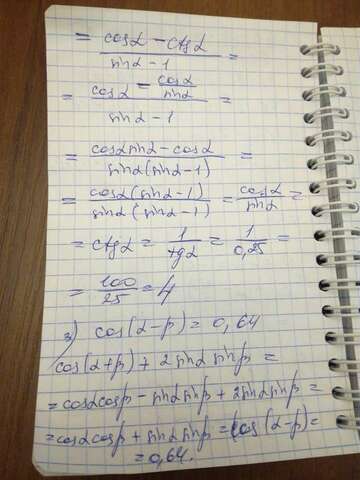 = (cosα - ctgα)/(sinα - 1) =
= (cosα - cosα/sinα)/(sinα - 1) =
= (cosα sinα - cosα)/(sinα(sinα - 1)) =
= (cosα(sinα - 1))/(sinα(sinα - 1)) = cosα/sinα =
= ctgα = 1/tgα = 1/0,25 =
= 100/25 = 4
3) cos(α-β) = 0,64
cos(α+β) + 2 sinα sinβ =
= cosα cosβ - sinα sinβ + 2 sinα sinβ =
= cosα cosβ + sinα sinβ = cos(α-β) =
= 0,64.